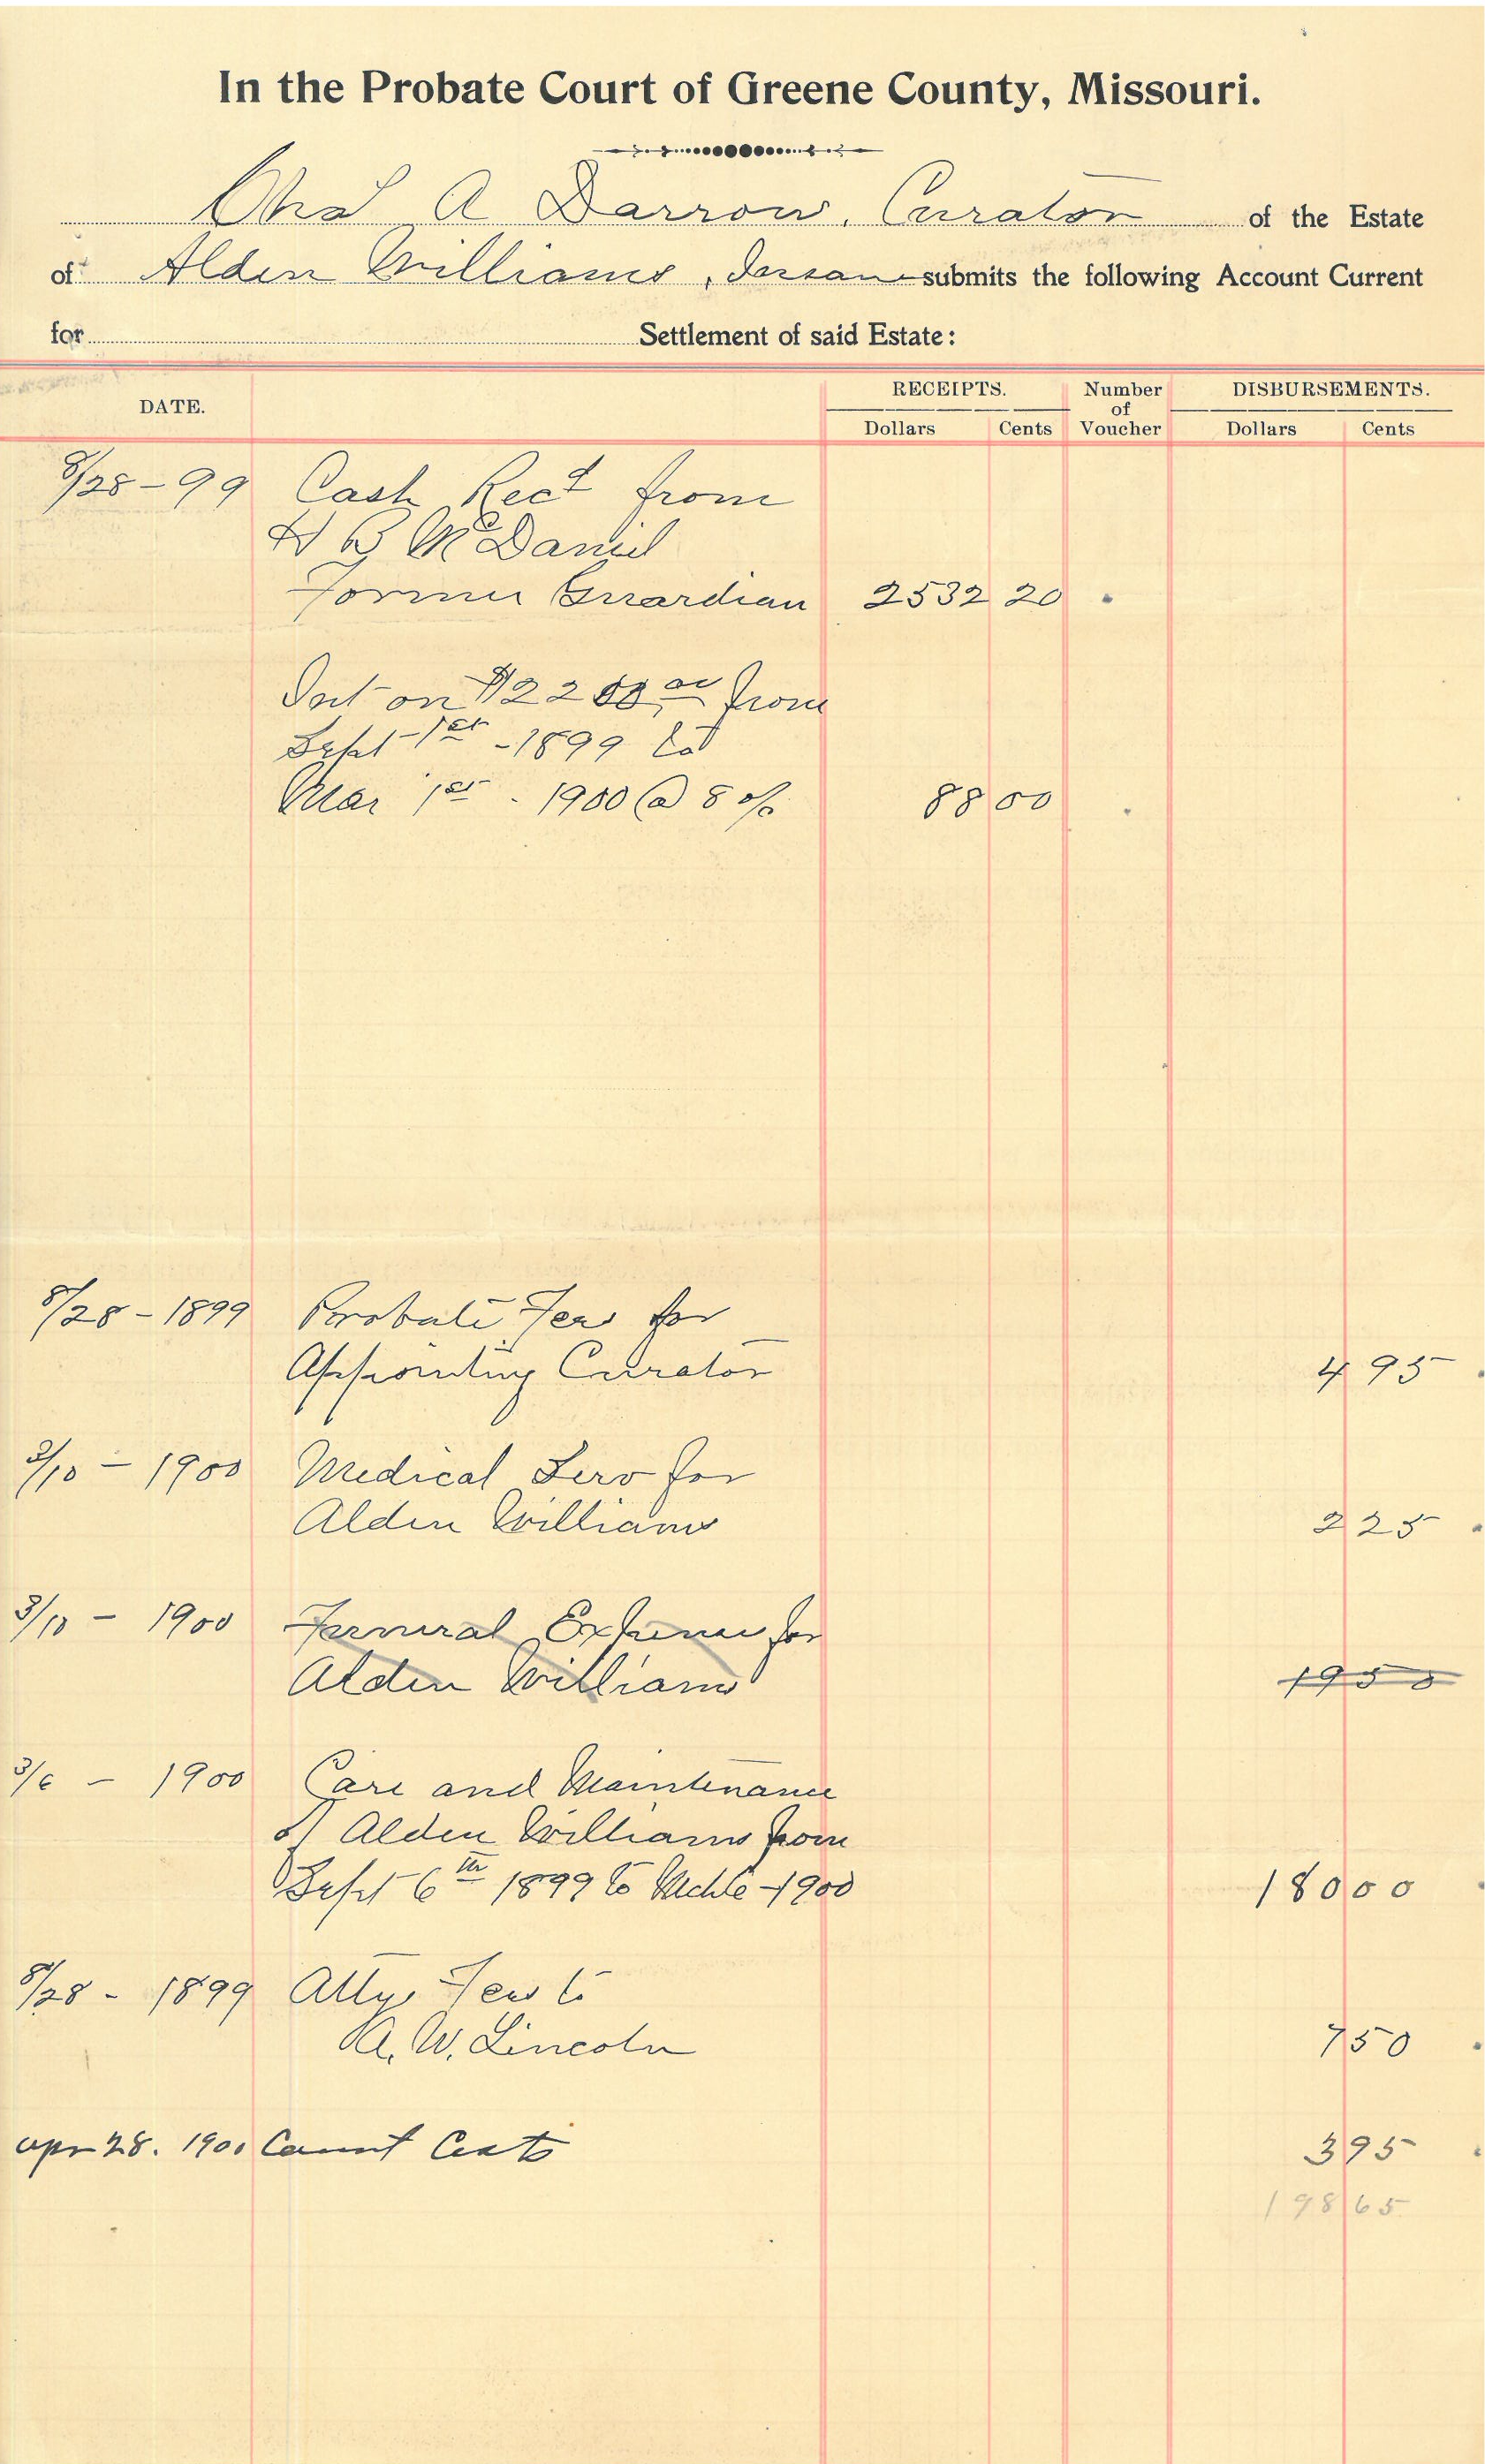 In the Probate Court of Greene County, Missouri.
Chas A Darrow, Curator of the Estate
of Alden Williams, Insane submits the following Account Current
for Settlement of said Estate:
DATE. RECEIPTS. Number of Voucher DISBURSEMENTS.
Dollars Cents Dollars Cents
8/28-99 Cash Recd from
H B McDaniel
Former Guardian 2532 20
Int on $2200.00 from
Sept 1st - 1899 to
Mar 1st - 1900 @ 8 % 88 00
8/28 - 1899 Probate Fees for
Appointing Curator 4 95
3/10 - 1900 Medical Serv for
Alden Williams 2 25
3/10 - 1900 Furneral Expense for
Alden Williams 19 50
3/6 - 1900 Care and Maintenance
of Alden Williams from
Sept 6th 1899 to Mch 6 - 1900 180 00
8/28 - 1899 Attys Fees to
A. W. Lincoln 7 50
Apr 28. 1900 Court Costs 3 95
198 65